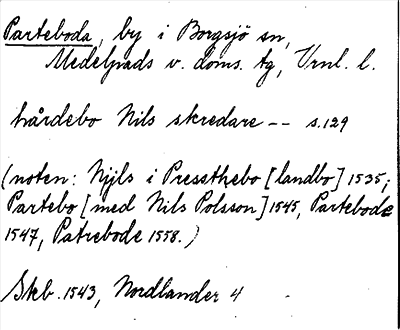 Parteboda, by i Borgsjö sn,
Medelpads v. doms. tg, Vrnl. l.
hårdebo Nils skredare -- s.129
(noten: Njjls i Pressthebo [landbo] 1535;
Partebo [med Nils Polsson] 1545, Partebode
1547, Patrebode 1558.)
Skb. 1543, Nordlander 4